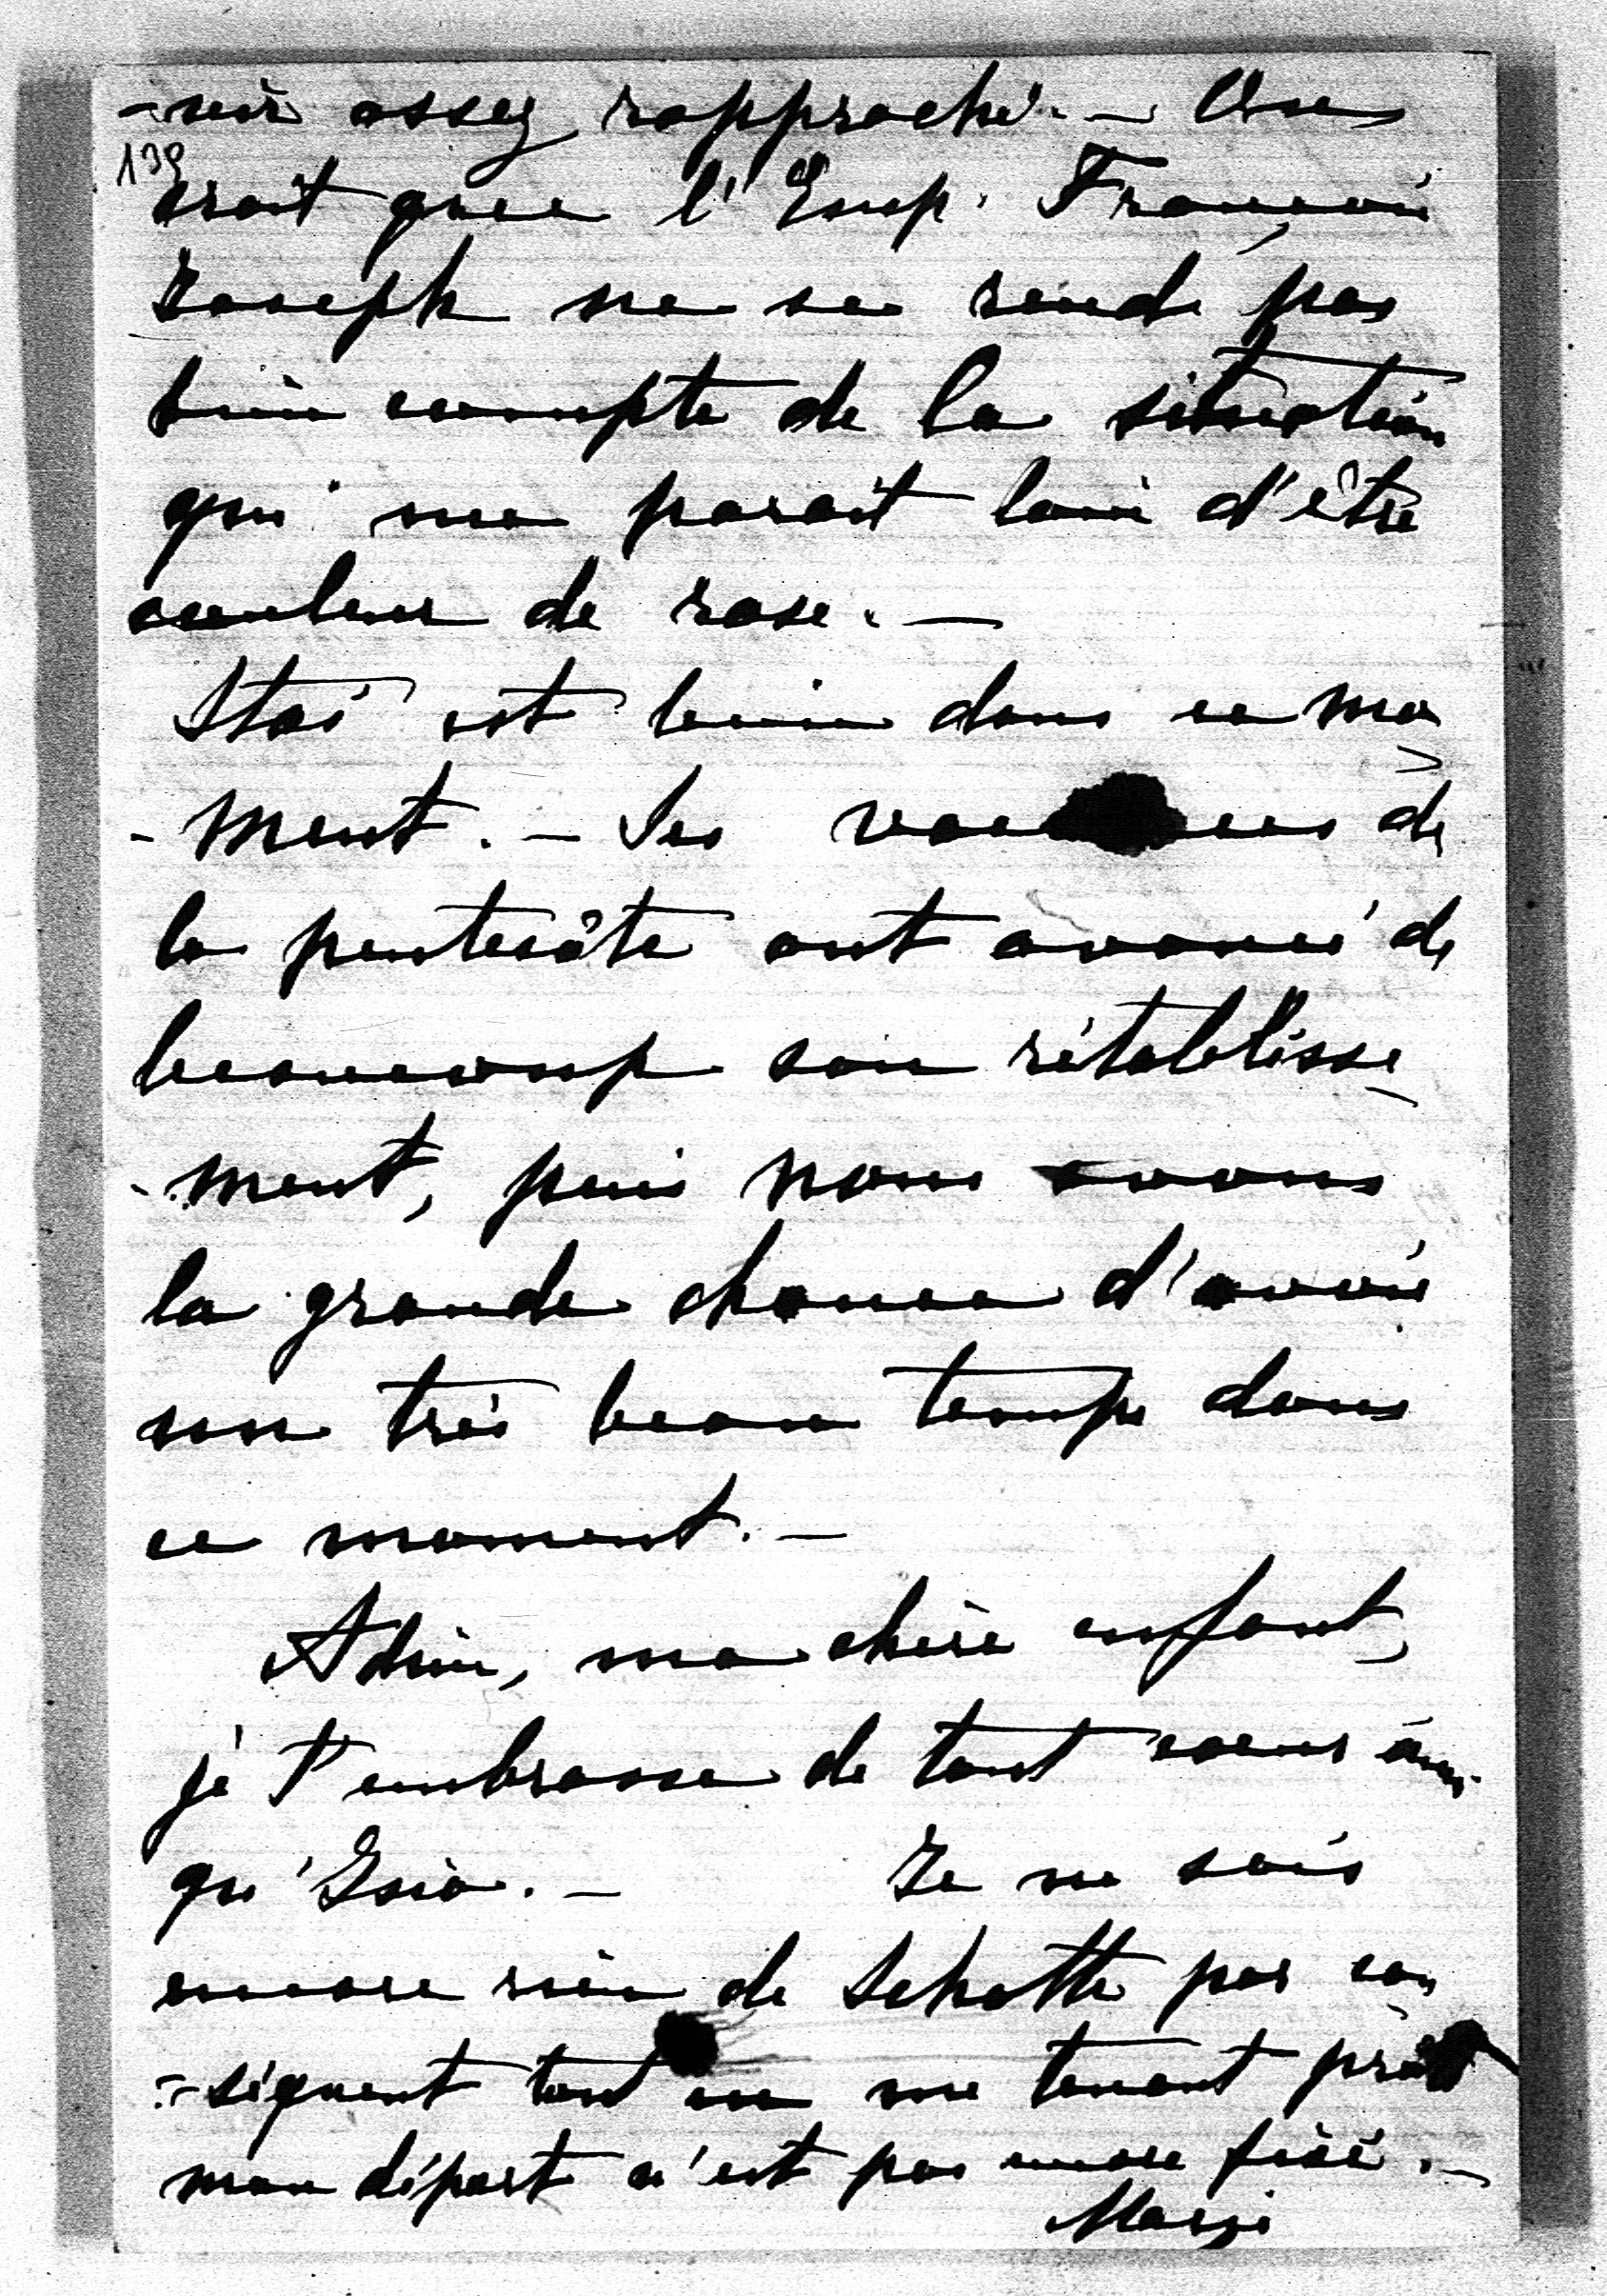 -nir assez rapproché. — On
139
croit que l'Emp. François
Joseph ne se rend pas
bien compte de la situation
qui me parait loin d'être
couleur de rose. —
Stas est bien dans ce mo
- ment. — Les vacances de
la pentecôte ont avancé de
beaucoup son rétablisse
- ment, puis nous avons
la grande chance d'avoir
un très beau temps dans
ce moment. —
Adieu, ma chère enfant,
je t'embrasse de tout coeur ainsi
qu'Isia. — Je ne sais
encore rien de Schotte par con
- séquent tout en me tenant prêt
mon départ n'est pas encore fixé. —